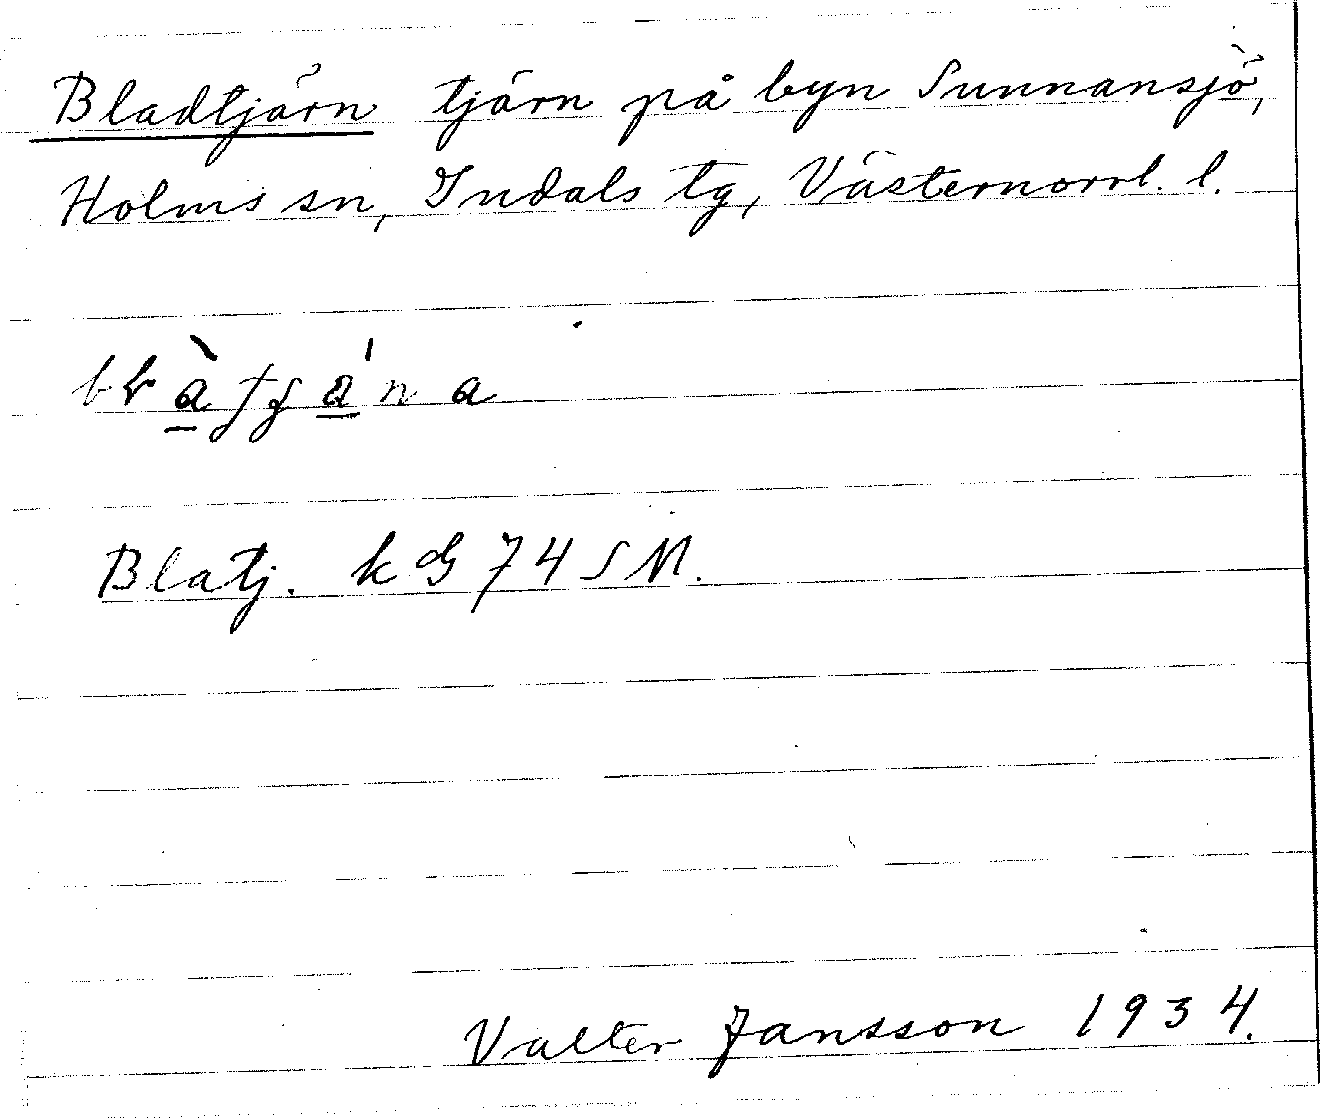 Bladtjärn tjärn på byn Sunnansjö,
Holms sn, Indals tg, Västernorrl. l.
Blatj. k G 74 SM.
Valter Jansson 1934.